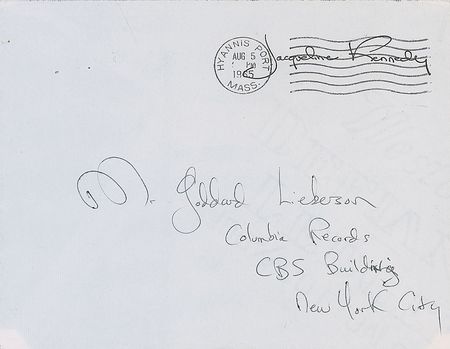 HYANNIS PORT
AUG 5
1965
MASS.
Jacqueline Kennedy
Mr. Goddard Lieberson
Columbia Records
CBS Building
New York City